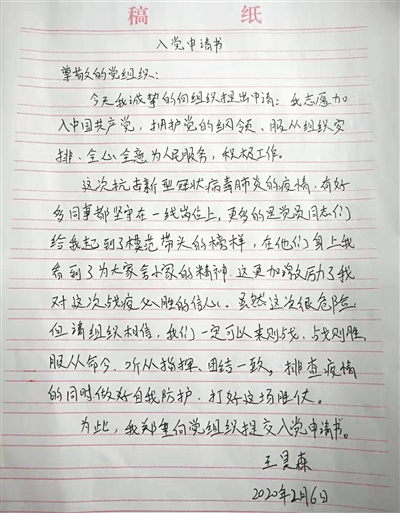 稿 纸
入党申请书
尊敬的党组织:
今天我诚挚的向组织提出申请:我志愿加
入中国共产党,拥护党的纲领、服从组织安
排、全心全意为人民服务,积极工作。
这次抗击新型冠状病毒肺炎的疫情,有好
多同事都坚守在一线岗位上,更多的是党员同志们
给我起到了模范带头的榜样,在他们身上我
看到了为大家舍小家的精神,这更加激励了我
对这次战疫必胜的信心。虽然这次很危险,
但请组织相信,我们一定可以来则战、战则胜,
服从命令、听从指挥、团结一致,排查疫情
的同时做好自我防护、打好这场胜仗。
为此,我郑重向党组织提交入党申请书。
王昊森
2020年2月6日